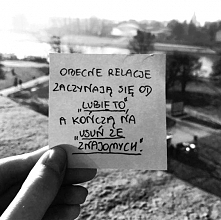 OBECNE RELACJE
ZACZYNAJĄ SIĘ OD
"LUBIĘ TO",
A KOŃCZĄ NA
"USUŃ ZE
ZNAJOMYCH".